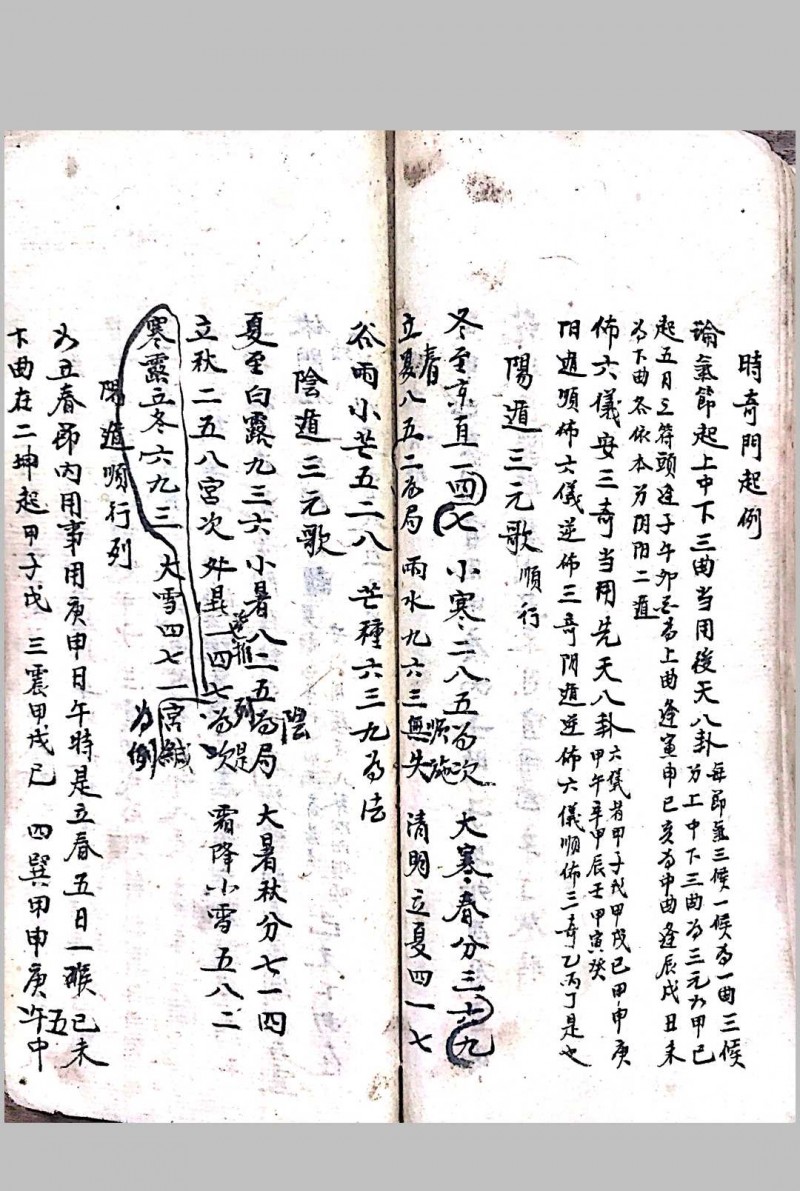 時奇門起例
瑜氣節起上中下三曲当用後天八卦每節氣三候一候為一曲三候
起五日三符頭逢子午卯酉為上曲逢寅申巳亥為中曲逢辰戌丑未
為下曲各依本分阴阳二遁
佈六儀安三奇当用先天八卦六儀者甲子戊甲戌己甲申庚
甲午辛甲辰壬甲寅癸
阳遁順佈六儀逆佈三奇阴遁逆佈六儀順佈三奇乙丙丁是也
陽遁三元歌順行
冬至京直一四七 小寒二八五為次 大寒春分三六九
立春八五二為局 雨水九六三無失 清明立夏四一七
順施
谷雨小芒五二八 芒種六三九為法
陰遁三元歌
夏至白露九三六 小暑八二五為局 大暑秋分七一四
立秋二五八宮次 一四七為次 霜降小雪五八二
寒露立冬六九三 大雪四七一宮
陰
列是
為例
陽遁順行列
立春節內用事用庚申日午時是立春五日一㬋己未
下曲在二坤起甲子戊 三震甲戌己 四巽甲申庚 五午中